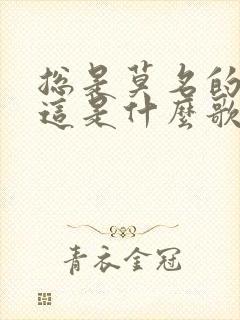 总是莫名的
這是什麼歌
青衣金冠